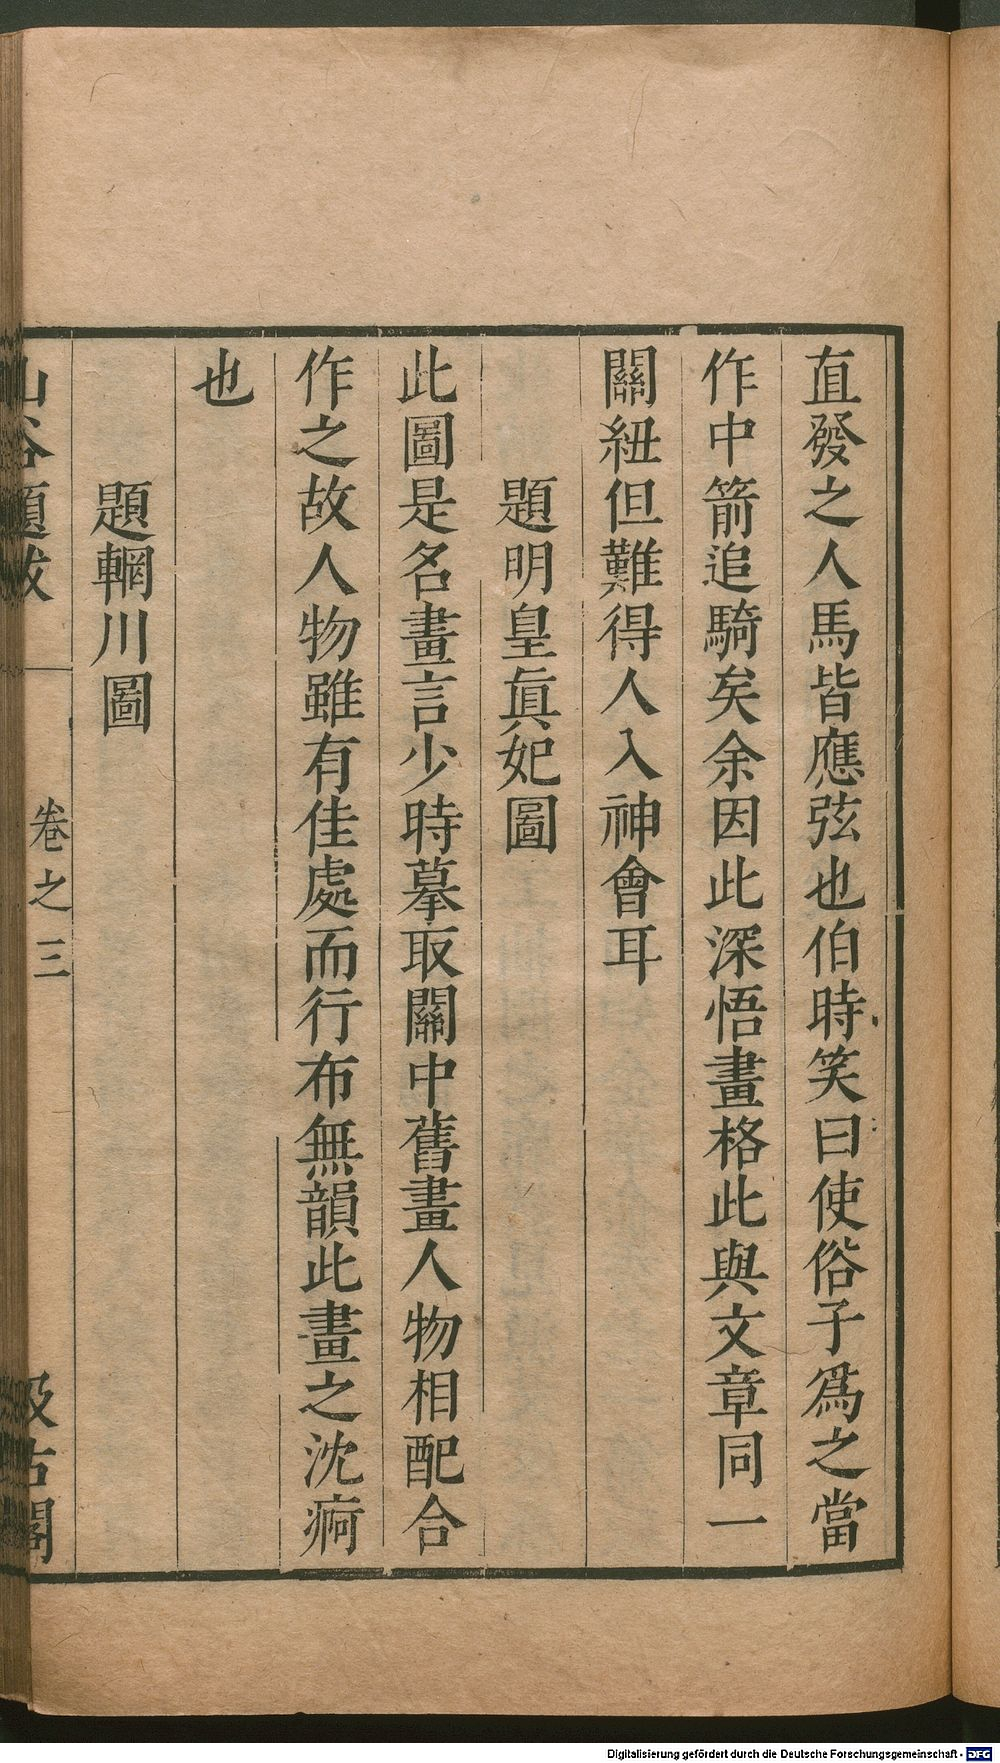 直發之人馬皆應弦也伯時笑曰使俗子爲之當
作中箭追騎矣余因此深悟畫格此與文章同一
關紐但難得人入神會耳
題明皇眞妃圖
此圖是名畫言少時摹取關中舊畫人物相配合
作之故人物雖有佳處而行布無韻此畫之沈痾
也
題輞川圖
山谷題跋 卷之三 汲古閣
Digitalisierung gefördert durch die Deutsche Forschungsgemeinschaft - DFG